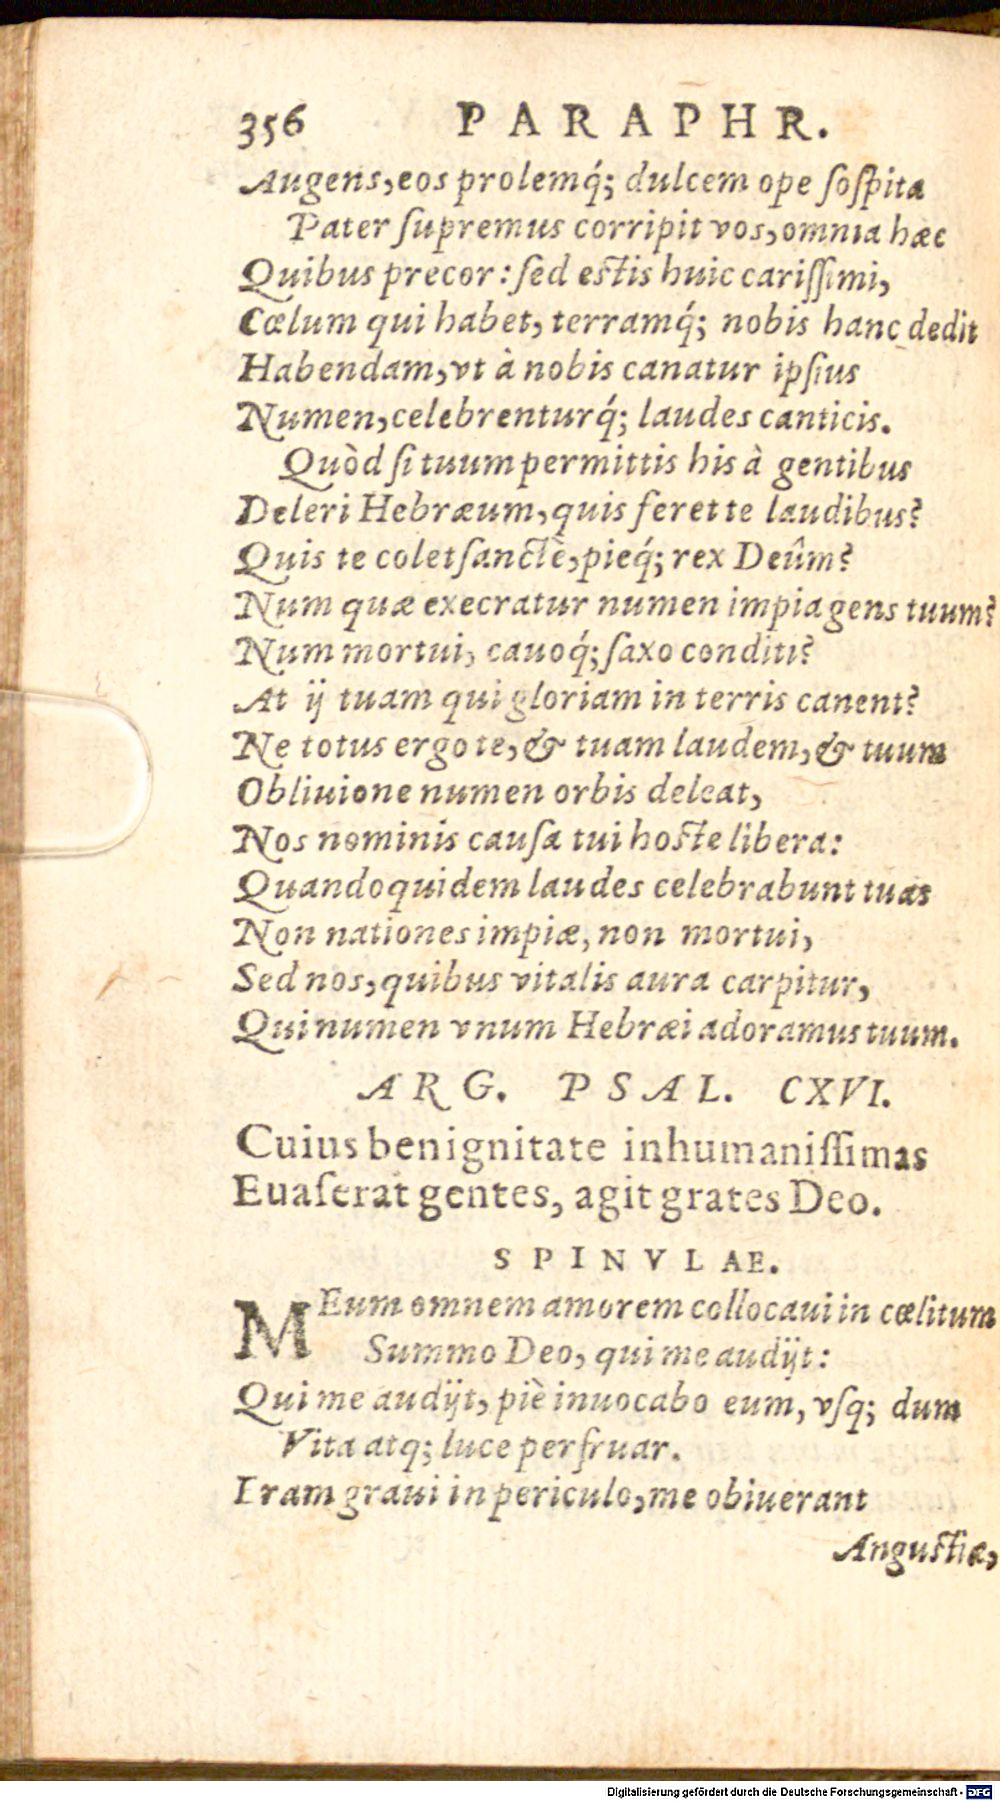 356 PARAPHR.
Augens, eos prolemq́; dulcem ope ſoſpita
Pater ſupremus corripit vos, omnia hæc
Quibus precor: ſed eſtis huic cariſſimi,
Cœlum qui habet, terramq́; nobis hanc dedit
Habendam, vt à nobis canatur ipſius
Numen, celebrenturq́; laudes canticis.
Quòd ſi tuum permittis his à gentibus
Deleri Hebræum, quis feret te laudibus?
Quis te colet ſanctè, pieq́; rex Deûm?
Num quæ execratur numen impia gens tuum?
Num mortui, cauoq́; ſaxo conditi?
At ij tuam qui gloriam in terris canent?
Ne totus ergo te, & tuam laudem, & tuum
Obliuione numen orbis deleat,
Nos nominis cauſa tui hoſte libera:
Quandoquidem laudes celebrabunt tuas
Non nationes impiæ, non mortui,
Sed nos, quibus vitalis aura carpitur,
Qui numen vnum Hebræi adoramus tuum.
ARG. PSAL. CXVI.
Cuius benignitate inhumaniſſimas
Euaſerat gentes, agit grates Deo.
SPINVLAE.
MEum omnem amorem collocaui in cœlitum
Summo Deo, qui me audijt:
Qui me audijt, piè inuocabo eum, vſq; dum
Vita atq; luce perfruar.
Eram graui in periculo, me obiuerant
Anguſtiæ,
Digitalisierung gefördert durch die Deutsche Forschungsgemeinschaft - DFG